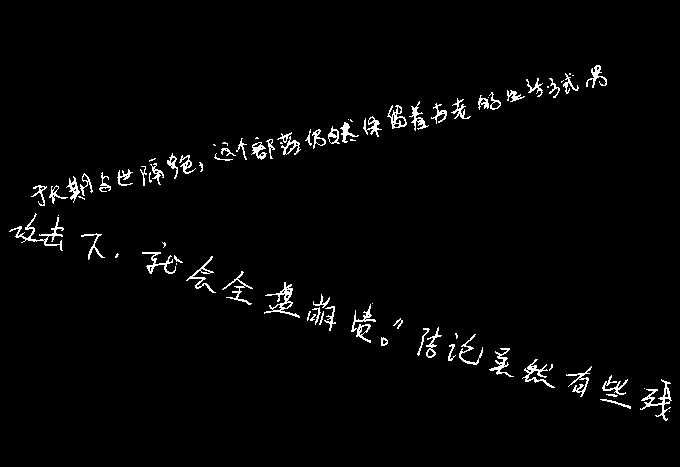 于长期与世隔绝，这个部落仍然保留着古老的生活方式男
攻击下，就会全盘崩溃。”结论虽然有些残